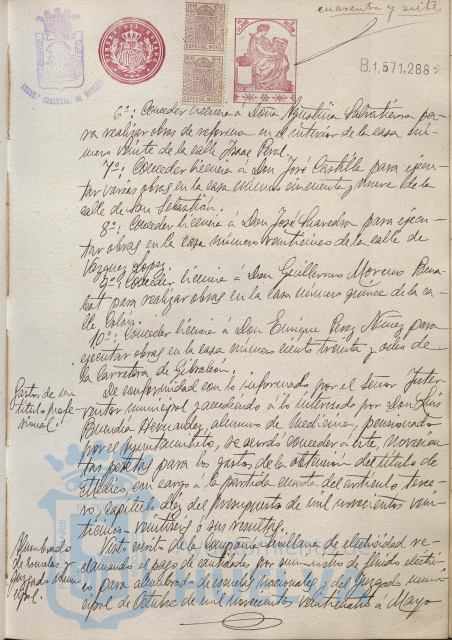 cuarenta y siete
TIMBRE DEL ESTADO
ESPECIAL MOVIL
ESPECIAL MOVIL
B.1,571,288
6º: Conceder licencia á Doña Agustina Salvatierra pa-
ra realizar obras de reforma en el interior de la casa nú-
mero veinte de la calle Isaac Peral.
7º: Conceder licencia á Don José Castilla para ejecu-
tar varias obras en la casa número cincuenta y nueve de la
calle de San Sebastián.
8º: Conceder licencia á Don José Saavedra para ejecu-
tar obras en la casa número veintinueve de la calle de
Vázquez López.
9º: Conceder licencia á Don Guillermo Moreno
para realizar obras en la casa número quince de la ca-
lle Colón.
10º: Conceder licencia á Don Enrique Perez Nuñez para
ejecutar obras en la casa número ciento treinta y ocho de
la Carretera de Gibraleon.
Gastos de un
titulo profe-
sional.
De conformidad con lo informado por el señor Inter-
ventor municipal y accediendo á lo interesado por Don Luis
Buendia Hernandez, alumno de Medicina, pensionado
por el Ayuntamiento, se acordó conceder á este, novecien-
tas pesetas para los gastos de la obtención del titulo de
Médico, con cargo á la partida cuarta del articulo terce-
ro, capitulo diez del presupuesto de mil novecientos vein-
ticinco-veintiseis ó sus resultas.
Alumbrado
de escuelas y
Juzgado muni-
cipal.
Visto escrito de la Compañia Sevillana de electricidad re-
clamando el pago de cantidades por suministro de fluido electri-
co para alumbrado de escuelas nacionales y del Juzgado muni-
cipal de Octubre de mil novecientos veinticuatro á Mayo